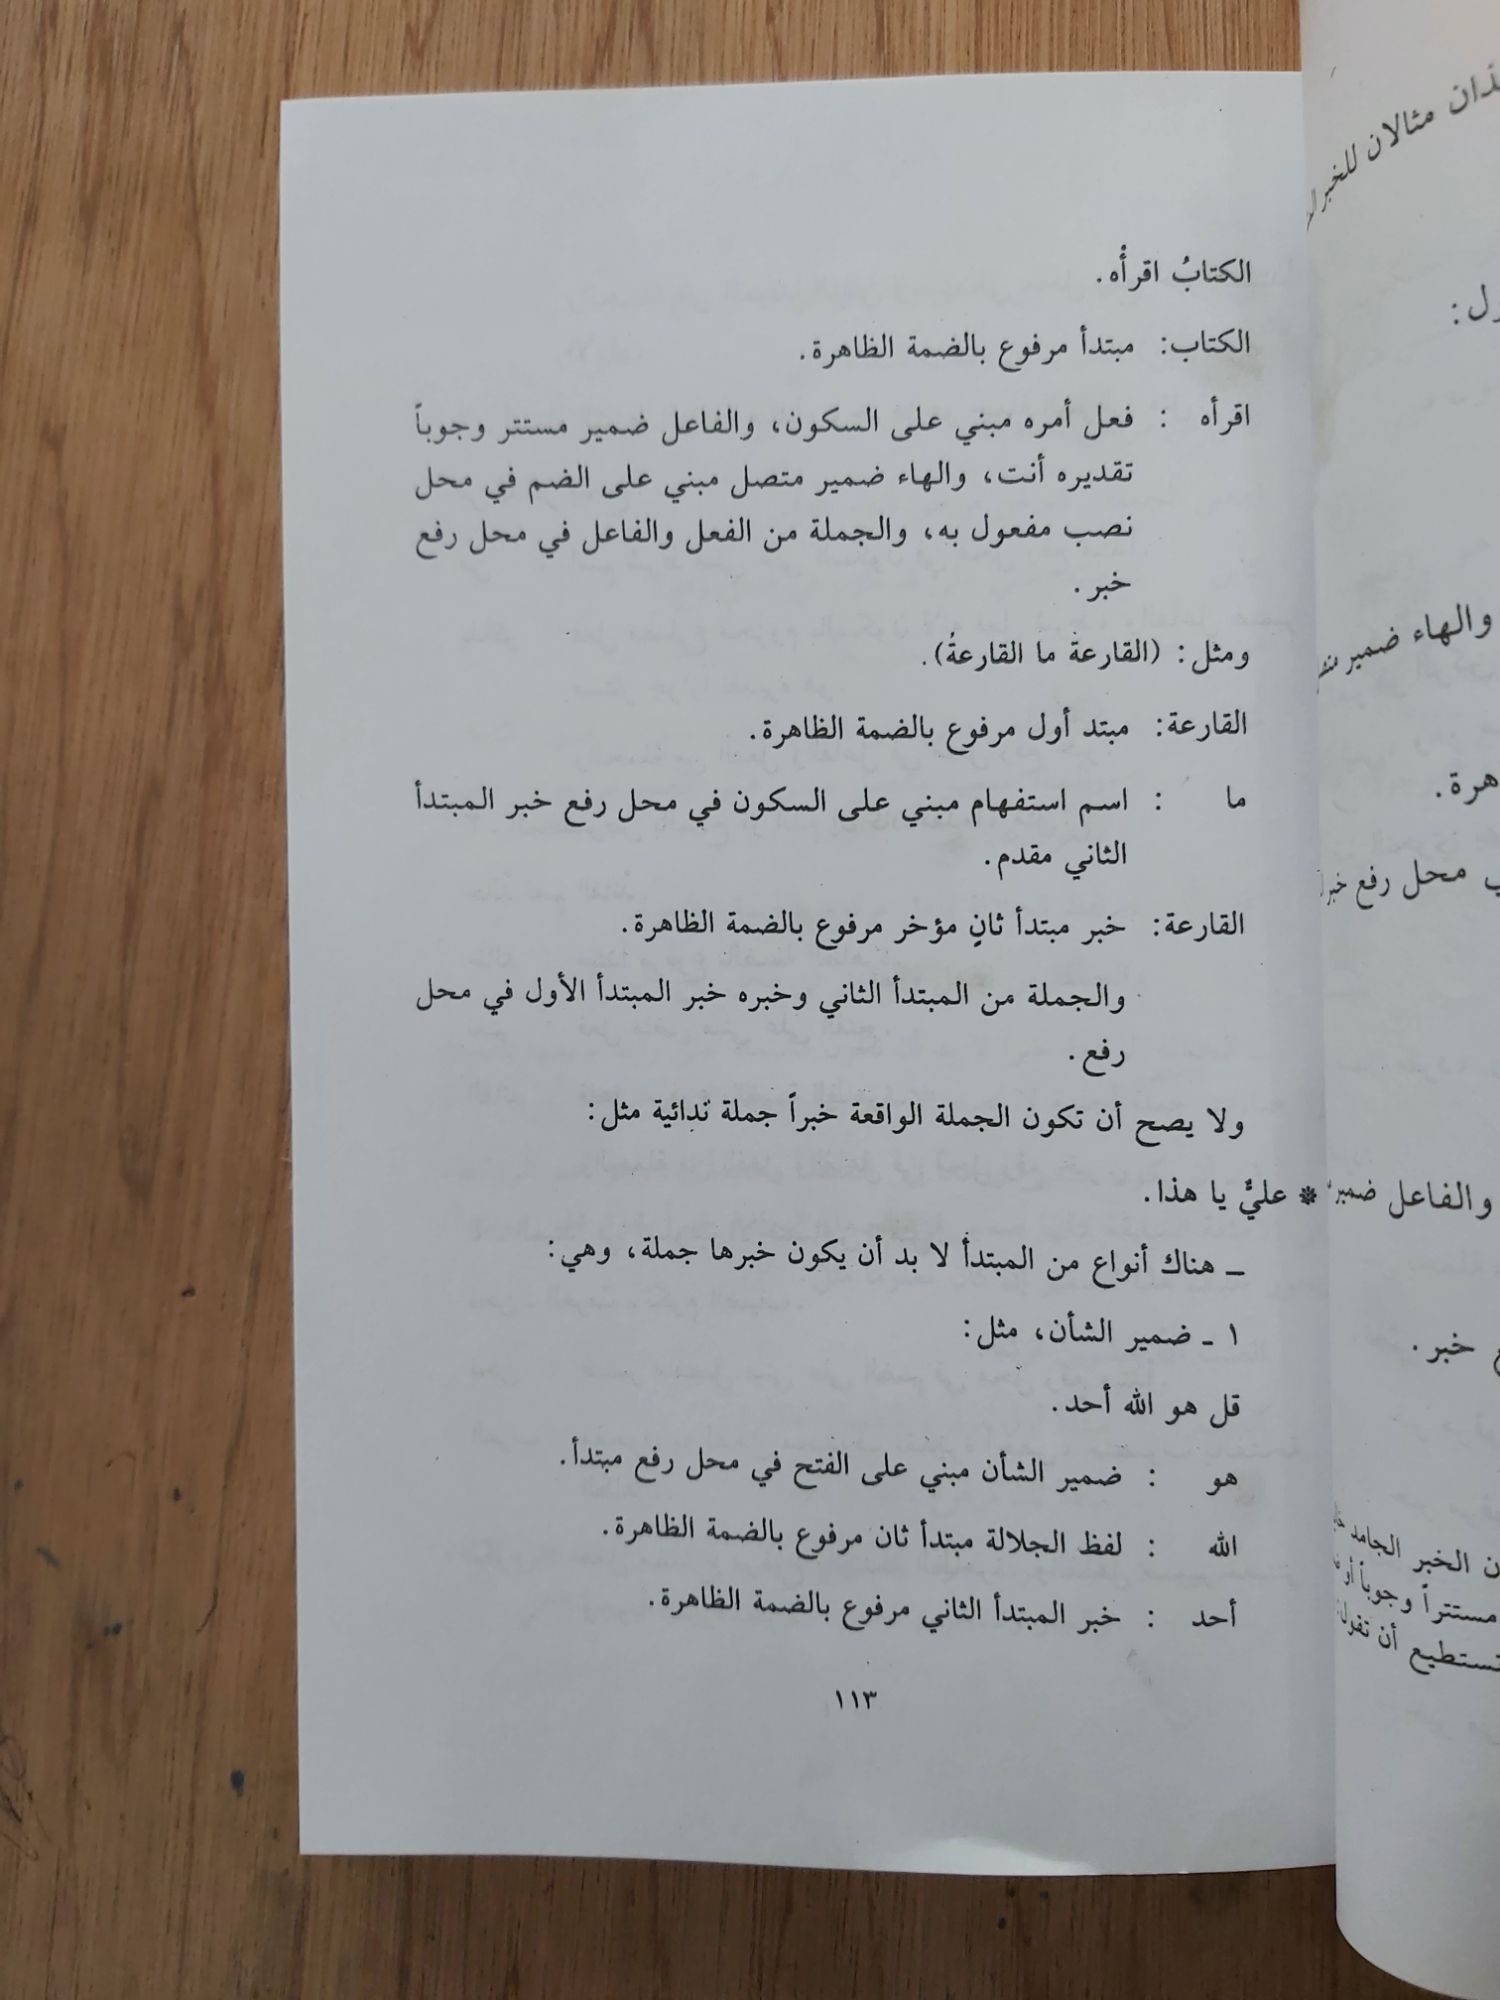 الكتابُ اقرأْه.
الكتاب: مبتدأ مرفوع بالضمة الظاهرة.
اقرأه : فعل أمره مبني على السكون، والفاعل ضمير مستتر وجوباً
تقديره أنت، والهاء ضمير متصل مبني على الضم في محل
نصب مفعول به، والجملة من الفعل والفاعل في محل رفع
خبر.
ومثل: (القارعة ما القارعةُ).
القارعة: مبتد أول مرفوع بالضمة الظاهرة.
ما : اسم استفهام مبني على السكون في محل رفع خبر المبتدأ
الثاني مقدم.
القارعة: خبر مبتدأ ثانٍ مؤخر مرفوع بالضمة الظاهرة.
والجملة من المبتدأ الثاني وخبره خبر المبتدأ الأول في محل
رفع.
ولا يصح أن تكون الجملة الواقعة خبراً جملة ندائية مثل:
* عليٌّ يا هذا.
ـ هناك أنواع من المبتدأ لا بد أن يكون خبرها جملة، وهي:
١ ـ ضمير الشأن، مثل:
قل هو الله أحد.
هو : ضمير الشأن مبني على الفتح في محل رفع مبتدأ.
الله : لفظ الجلالة مبتدأ ثان مرفوع بالضمة الظاهرة.
أحد : خبر المبتدأ الثاني مرفوع بالضمة الظاهرة.
١١٣
مثالان
والهاء ضمير
محل رفع
والفاعل
خبر.
الخبر الجامد
مستتراً وجوباً أو
أن